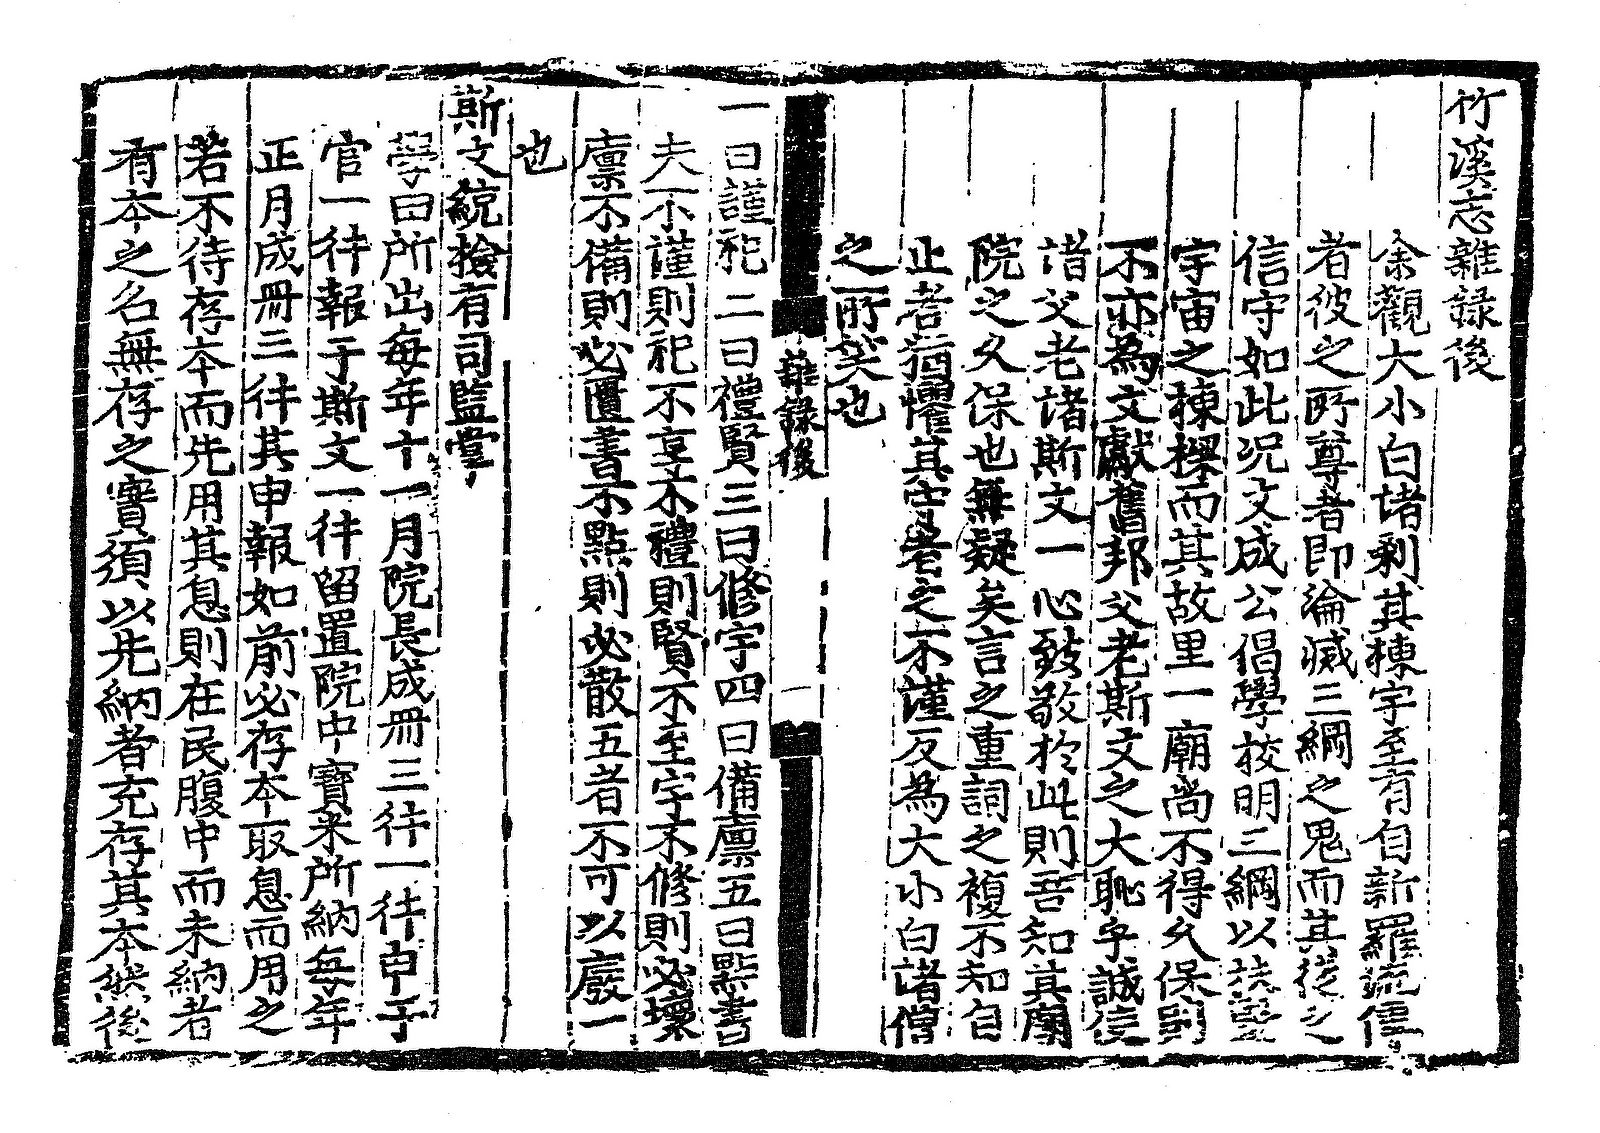 竹溪志雜錄後
余觀大小白诸刹其棟宇至有自新羅流傳
者彼之所尊者即淪滅三綱之鬼而其徒之
信守如此况文成公倡學校明三綱以扶竪
宇宙之棟樑而其故里一廟尚不得久保到
不亦為文獻舊邦父老斯文之大恥乎誠使
诸父老诸斯文一心致敬於此則吾知其廟
院之久保也無疑矣言之重詞之複不知自
止者猶懼其守者之不謹反為大小白诸僧
之所笑也
雜錄後
一
一曰謹祀二曰禮賢三曰修宇四曰備廪五曰點書
夫不謹則祀不享不禮則賢不至宇不修則必壞
廪不備則必匱書不點則必散五者不可以廢一
也
斯文統撿有司監掌
學曰所出每年十一月院長成冊三件一件申于
官一件報于斯文一件留置院中寶米所納每年
正月成冊三件其申報如前必存本取息而用之
若不待存本而先用其息則在民腹中而未納者
有本之名無存之實須以先納者充存其本然後